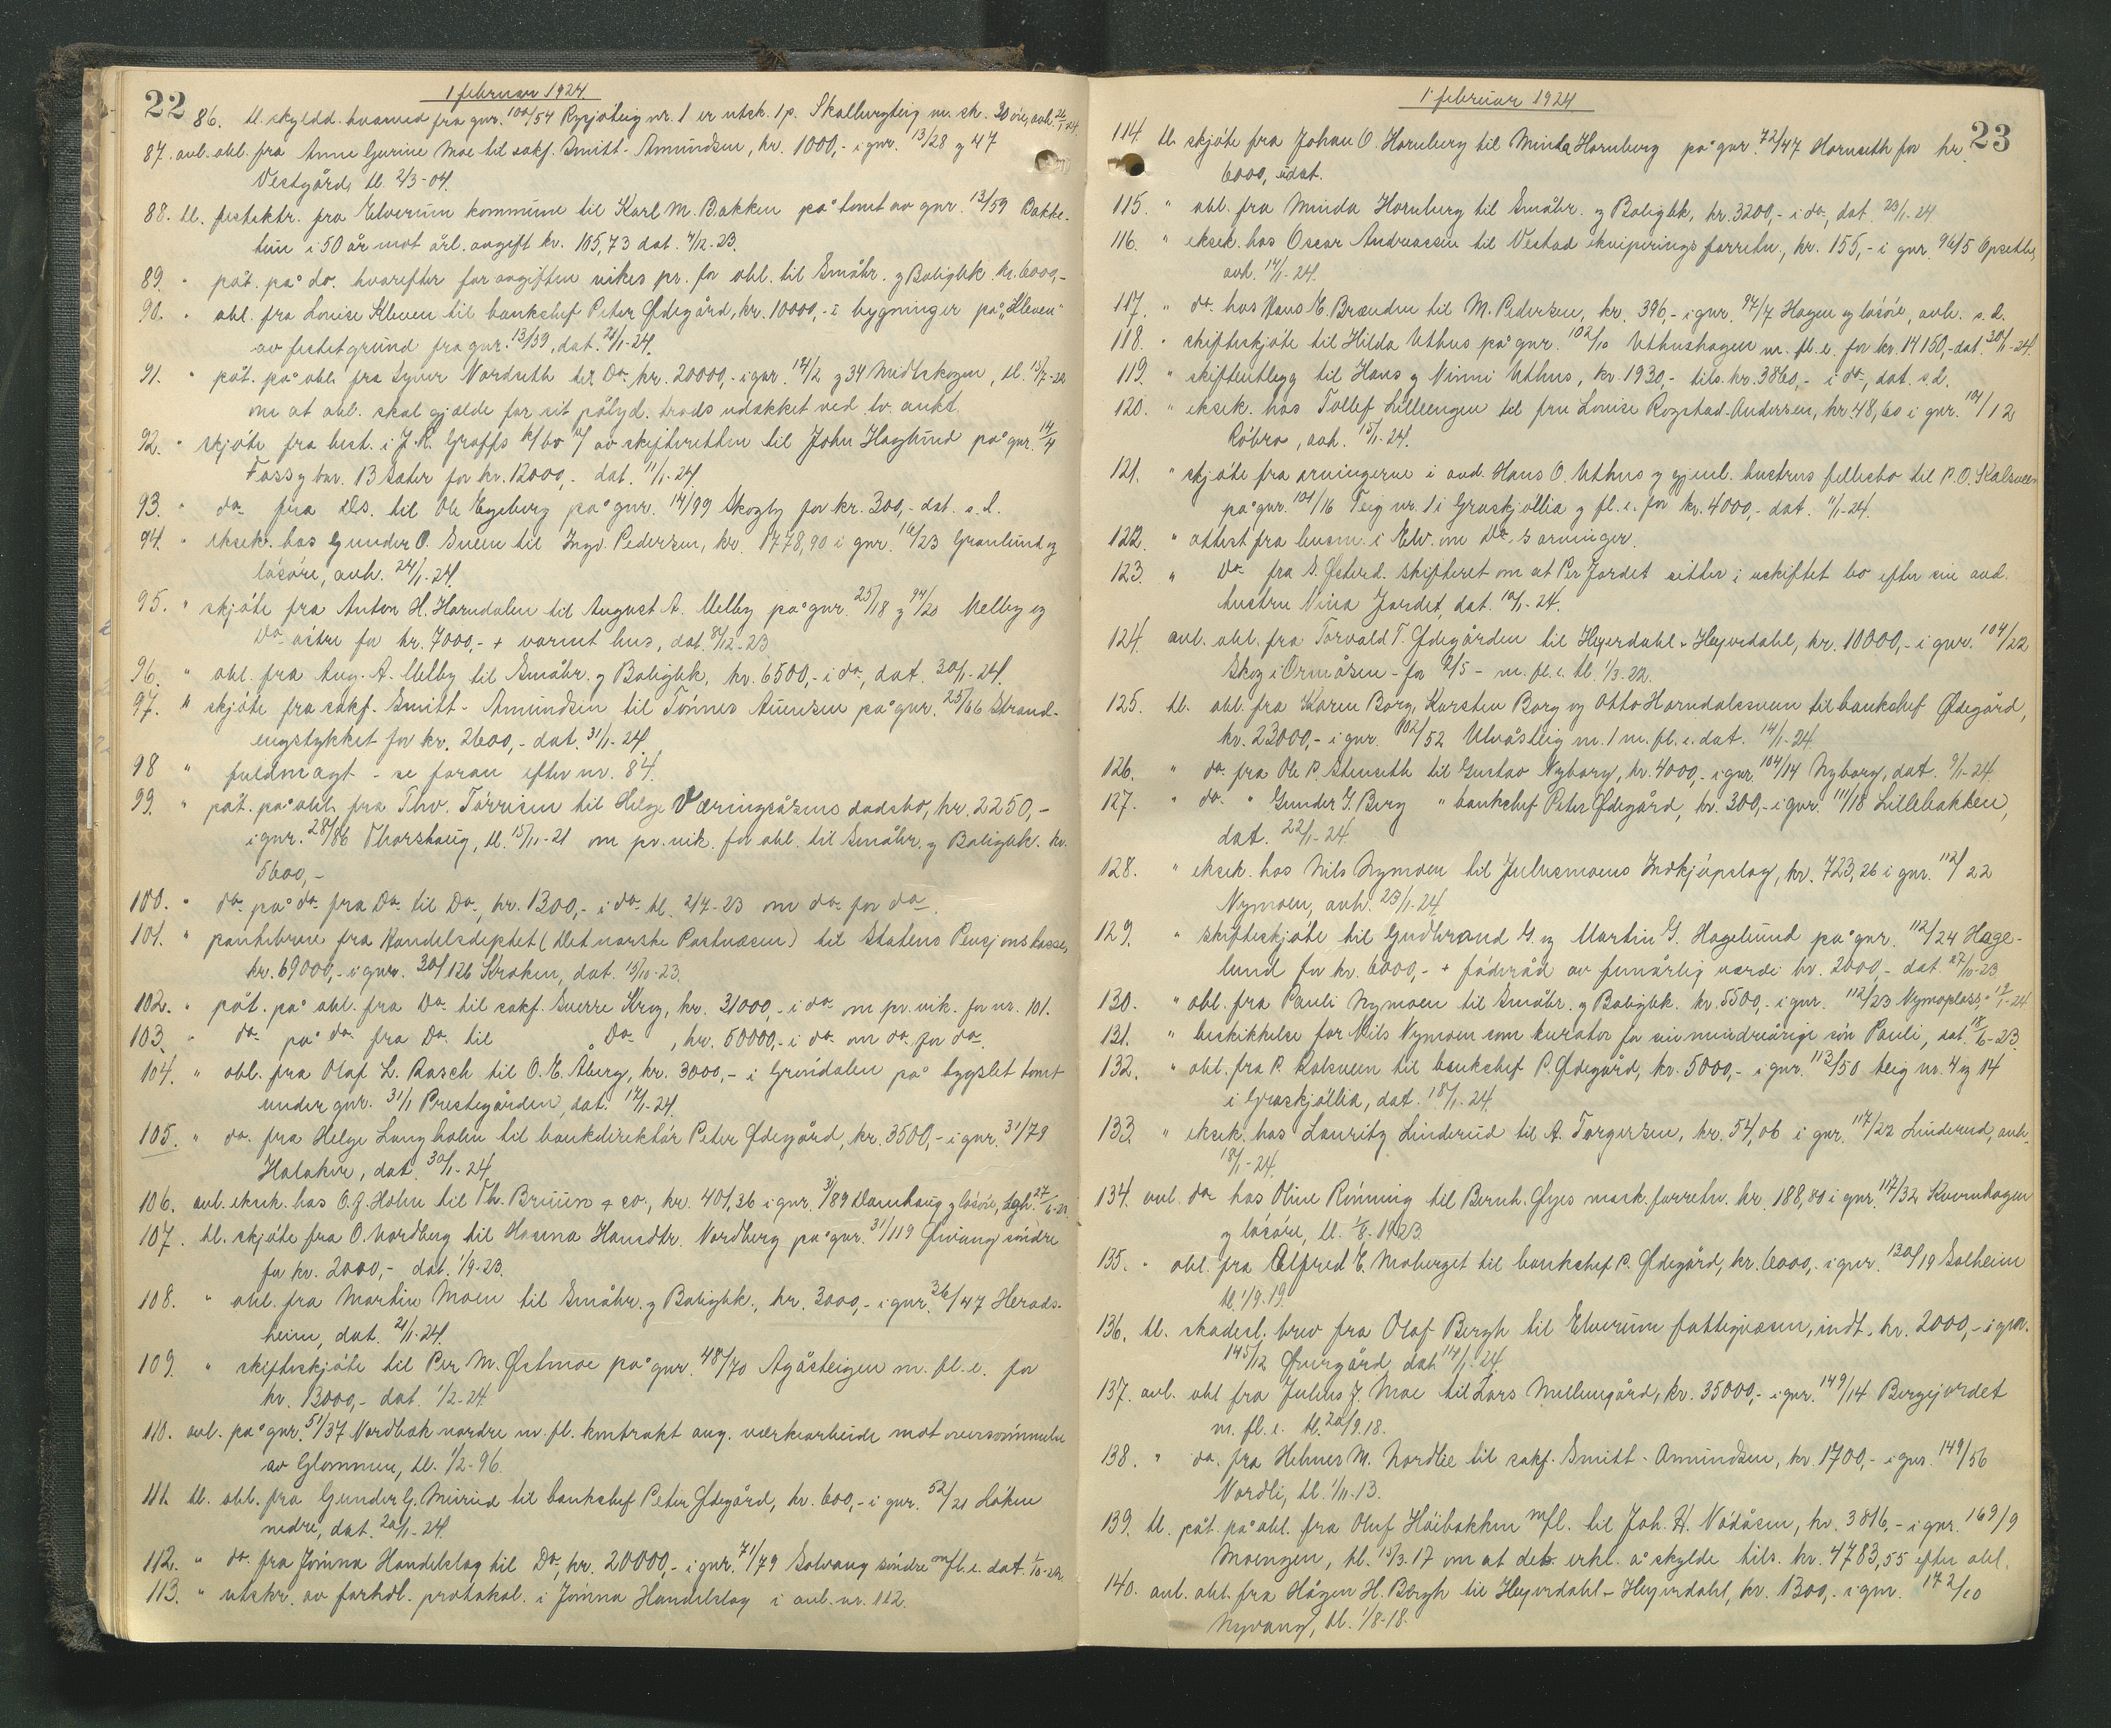 22
1 februar 1924
86. tl. skyldd. hvorved fra gnr. 100/54 nr. 1 er utsk. 1 p. Skallburgteig m. sk. 20 øre, avh. 26/1-24.
87. avl. obl. fra Anne Gurine Moe til sakf. Smitt-Amundsen, kr. 1000,- i gnr. 13/28 g 47
Vestgård, tl. 2/3-04.
88. tl. festektr. fra Elverum kommune til Karl M. Bakken på tomt av gnr. 13/59 Bakke-
tun i 50 år mot årl. avgift kr. 105,73 dat. 4/12-23.
89. " påt. på do. hvorefter for avgiften vikes pr. for obl. til Småbr. g Boligbk. kr. 6000,-
90. " obl. fra Louise Kleven til bankchef Peter Ødegård, kr. 10000,- i bygninger på "Kleven"
av festet grund fra gnr. 13/59, dat. 21/1-24.
91. " påt. på obl. fra Syver Nordseth til Do. kr. 20000,- i gnr. 14/2 g 34 Midtskogen, tl. 15/7-22
om at obl. skal gjælde for sit pålyd. trods utslukket ved tv. aukt.
92. " skjøte fra best. i J. K. Graffs k/bo v/ av skifteretten til John Haglund på gnr. 14/4
Foss g bnr. 13 Sæter for kr. 12000,- dat. 11/1-24.
93. " do. fra Ds. til Ole Egeberg på gnr. 14/99 Skogby for kr. 300,- dat. s. d.
94. " eksek. hos Gunder O. Sveen til Ingv. Pedersen, kr. 1778,90 i gnr. 16/23 Granlund og
løsøre, avh. 24/1-24.
95. " skjøte fra Anton H. Horndalen til August A. Melby på gnr. 25/18 g 94/20 Melby og
Do. østre for kr. 7000,- + varmt hus, dat. 8/12-23
96. " obl. fra Aug. A. Melby til Småbr. g Boligbk, kr. 6500,- i do., dat. 30/1-24.
97. " skjøte fra sakf. Smitt-Amundsen til Tønnes Auensen på gnr. 25/66 Strand-
engstykket for kr. 2600,- dat. 31/1-24.
98 " fuldmagt - se foran efter nr. 84.
99. " påt. på obl. fra Thv. Tørrisen til Helge Væringsåsens dødsbo, kr. 2250,-
i gnr. 28/86 Thorshaug, tl. 15/11-21 om pr. vik. for obl. til Småbr. g Boligbk. kr.
5600,-
100. " do. på do. fra Do. til Do., kr. 1300,- i do. tl. 2/7-23 om do. for do.
101. " pantebrev fra Handelsdeptet (Det norske Postvæsen) til Statens Pensjonskasse,
kr. 69000,- i gnr. 30/126 Kroken, dat. 15/10-23.
102. " påt. på obl. fra Do. til sakf. Sverre Krog, kr. 31000,- i do. om pr. vik. for nr. 101.
103. " do. på do. fra Do. til Do., kr. 50000,- i do. om do. for do.
104. " obl. fra Olaf L. Rasch til O. E. Åberg, kr. 3000,- i Grindalen på bygslet tomt
under gnr. 31/1 Prestegården, dat. 17/1-24.
105. " do. fra Helge Langholm til bankdirektør Peter Ødegård, kr. 3500,- i gnr. 31/79
Holaker, dat. 30/1-24.
106. avl. eksek. hos O. J. Holm til Th. Bruun & co., kr. 401,36 i gnr. 31/89 Damhaug g løsøre, tgl. 27/6-23.
107. tl. skjøte fra O. Nordberg til Hanna Hansdtr. Nordberg på gnr. 31/119 Granvang søndre
for kr. 2000,- dat. 1/9-23.
108. " obl. fra Martin Moen til Småbr. g Boligbk., kr. 3000,- i gnr. 36/47 Herads-
heim, dat. 21/1-24.
109. " skifteskjøte til Per M. Østmoe på gnr. 48/70 Agåsteigen m. fl. e. for
kr. 13000,- dat. 1/2-24.
110. avl. på gnr. 51/37 Nordbæk nordre m. fl. kontrakt ang. værkearbeide mot oversvømmelse
av Glommen, tl. 1/2-96.
111. tl. obl. fra Gunder G. Meirud til bankchef Peter Ødegård, kr. 600,- i gnr. 52/21 Løken
nedre, dat. 20/1-24.
112. " do. fra Jømna Handelslag til Do., kr. 20000,- i gnr. 71/79 Solvang søndre m fl. e. dat. 1/10-22
113. " utskr. av forhdl. protokol. i Jømna Handelslag i anl. nr. 112.
23
1 februar 1924
114. tl. skjøte fra Johan O. Hornberg til Minda Hornberg på gnr. 72/47 Hornseth for kr.
6000, udat.
115. " obl. fra Minda Hornberg til Småbr. g Boligbk, kr. 3200,- i do., dat. 23/1-24
116. " eksek. hos Oscar Andreassen til Vestad ekviperingsforretn., kr. 155,- i gnr. 96/5 Opsetth,
avh. 14/1-24.
117. " do. hos Hans E. Brænden til M. Pedersen, kr. 396,- i gnr. 97/7 Hagen og løsøre, avh. s. d.
118. " skifteskjøte til Hilda Uthus på gnr. 102/10 Uthushagen m. fl. e. for kr. 14150,- dat. 30/1-24.
119. " skifteutlegg til Hans g Ninni Uthus, kr. 1930,- tils. kr. 3860,- i do., dat. s. d.
120. " eksek. hos Tollef Lilleengen til fru Louise Rogstad-Andersen, kr. 48,60 i gnr. 104/12
Røbro, avh. 15/1-24.
121. " skjøte fra arvingerne i avd. Hans O. Uthus g gjenl. hustrus fellesbo til P. O. Kalsveen
på gnr. 101/16 Teig nr. 1 i Graskjøllia g fl. e. for kr. 4000,- dat. 11/1-24.
122. " attest fra lensm. i Elv. om Do.s arvinger.
123. " Do. fra S. Østerd. skifteret om at Per Jordet sitter i uskiftet bo efter sin avd.
hustru Nina Jordet, dat. 10/1-24.
124. avl. obl. fra Torvald T. Ødegården til Heyerdahl-Heyerdahl, kr. 10000,- i gnr. 104/22
Skog i Ormåsen - for 2/5 - m. fl. e. tl. 1/3-22.
125. tl. obl. fra Karen Borg, Karsten Borg og Otto Horndalsveen til bankchef Ødegård,
kr. 23000,- i gnr. 102/52 Ulvåsteig nr. 1 m. fl. e. dat. 14/1-24
126. " do. fra Ole P. Stenseth til Gustav Nyborg, kr. 4000,- i gnr. 104/14 Nyborg, dat. 9/1-24.
127. " do. " Gunder G. Berg " bankchef Peter Ødegård, kr. 300,- i gnr. 111/18 Lillebakken,
dat. 22/1-24.
128. " eksek. hos Nils Nymoen til Julusmoens Indkjøpslag, kr. 723,26 i gnr. 112/22
Nymoen, avh. 23/1-24.
129. " skifteskjøte til Gudbrand G. og Martin G. Hagelund på gnr. 112/24 Hage-
lund for kr. 6000,- + føderåd av femårlig værdi kr. 2000,- dat. 27/10-23
130. " obl. fra Pauli Nymoen til Småbr. g Boligbk. kr. 5500,- i gnr. 112/23 Nymoplass 12/1-24
131. " beskikkelse for Nils Nymoen som kurator for sin mindreårige søn Pauli, dat. 18/6-23.
132. " obl. fra P. Kalsveen til bankchef P. Ødegård, kr. 5000,- i gnr. 113/50 teig nr. 4 og 14
i Graskjøllia, dat. 18/1-24.
133. " eksek. hos Lauritz Linderud til A. Torgersen, kr. 54,06 i gnr. 117/22 Linderud, avh.
18/1-24.
134. avl. do hos Oline Rønning til Bernh. Gyes mask. forretn. kr. 188,80 i gnr. 117/32 Kvernhagen
g løsøre, tl. 1/8-1923.
135. " obl. fra Alfred E. Moberget til bankchef P. Ødegård, kr. 6000,- i gnr. 130/19 Solheim
tl. 1/9-19.
136. tl. skadesl. brev fra Olaf Bergh til Elverum fattigvæsen, indt. kr. 2000,- i gnr.
145/12 Øvergård, dat. 14/1-24.
137. avl. obl fra Julius J. Moe til Lars Mellemgård, kr. 35000,- i gnr. 149/14 Bergejordet
m. fl. e. tl. 20/9.18.
138. " do. fra Helmer M. Nordlie til sakf. Smitt-Amundsen, kr. 1700,- i gnr. 149/56
Nordli, tl. 1/11-13.
139. tl. påt. på obl. fra Oluf Høibakken m fl. til Joh. H. Nødåsen, kr. 3816,- i gnr. 169/9
Moengen, tl. 15/3.17 om at deb. erkl. å skylde tils. kr. 4783,55 efter obl.
140. avl. obl. fra Hågen H. Bergh til Heyerdahl-Heyerdahl, kr. 1300,- i gnr. 172/10
Nyvang, tl. 1/8-18.